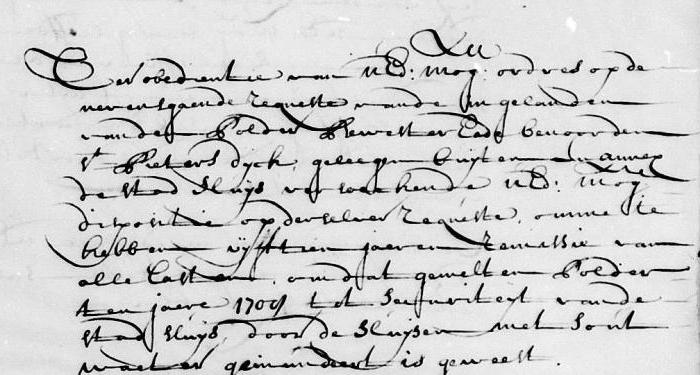 Ter obedientie van UEd: Mog: ordres op de
nevensgaende Requeste van de Ingelanden
van den Polder Bewester Eede benoorden
St Pieters Dyck, geleegen buyten en annex
de stad Sluys versoekende UEd: Mog
dispositie op derselver Requeste, omme te
hebben vyfftien jaeren Remissie van
alle lasten, omdat gemelten Polder
ten jaere tot securiteyt van de
stad Sluys, door de Sluysen met sout
waeter geinundeert is geweest.